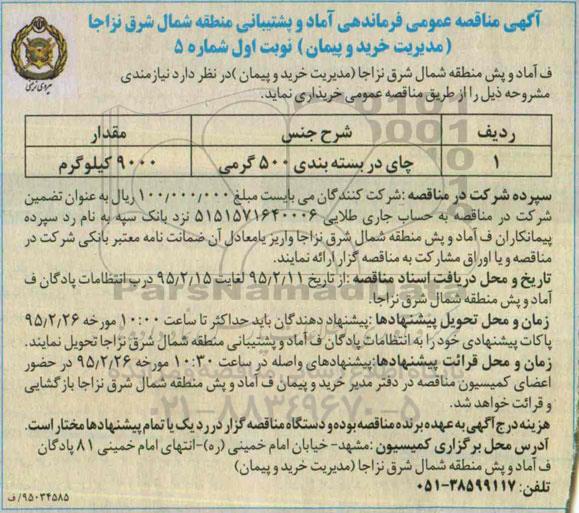 آگهی مناقصه عمومی فرماندهی آماد و پشتیبانی منطقه شمال شرق نزاجا
(مدیریت خرید و پیمان) نوبت اول شماره ۵
ف آماد و پش منطقه شمال شرق نزاجا (مدیریت خرید و پیمان )در نظر دارد نیازمندی
مشروحه ذیل را از طریق مناقصه عمومی خریداری نماید.
ردیف شرح جنس مقدار
۱ چای در بسته بندی ۵۰۰ گرمی ۹۰۰۰ کیلوگرم
سپرده شرکت در مناقصه :شرکت کنندگان می بایست مبلغ ۱۰۰,۰۰۰,۰۰۰ ریال به عنوان تضمین
شرکت در مناقصه به حساب جاری طلایی ۵۱۵۱۵۷۱۶۴۰۰۰۶ نزد بانک سپه به نام رد سپرده
پیمانکاران ف آماد و پش منطقه شمال شرق نزاجا واریز یامعادل آن ضمانت نامه معتبر بانکی شرکت در
مناقصه و یا اوراق مشارکت به مناقصه گزار ارائه نمایند.
تاریخ و محل دریافت اسناد مناقصه :از تاریخ ۹۵/۲/۱۱ لغایت ۹۵/۲/۱۵ درب انتظامات پادگان ف
آماد و پش منطقه شمال شرق نزاجا.
زمان و محل تحویل پیشنهادها :پیشنهاد دهندگان باید حداکثر تا ساعت ۱۰:۰۰ مورخه ۹۵/۲/۲۶
پاکات پیشنهادی خود را به انتظامات پادگان ف آماد و پشتیبانی منطقه شمال شرق نزاجا تحویل نمایند.
زمان و محل قرائت پیشنهادها:پیشنهادهای واصله در ساعت ۱۰:۳۰ مورخه ۹۵/۲/۲۶ در حضور
اعضای کمیسیون مناقصه در دفتر مدیر خرید و پیمان ف آماد و پش منطقه شمال شرق نزاجا بازگشایی
و قرائت خواهد شد.
هزینه درج آگهی به عهده برنده مناقصه بوده و دستگاه مناقصه گزار در رد یک یا تمام پیشنهادها مختار است.
آدرس محل برگزاری کمیسیون :مشهد- خیابان امام خمینی (ره)-انتهای امام خمینی ۸۱ پادگان
ف آماد و پش منطقه شمال شرق نزاجا (مدیریت خرید و پیمان)
تلفن: ۳۸۵۹۹۱۱۷-۰۵۱
۹۵۰۳۴۵۸۵/ف
ParsNamadData
۰۲۱-۸۸۳۴۹۶۷۰-۵